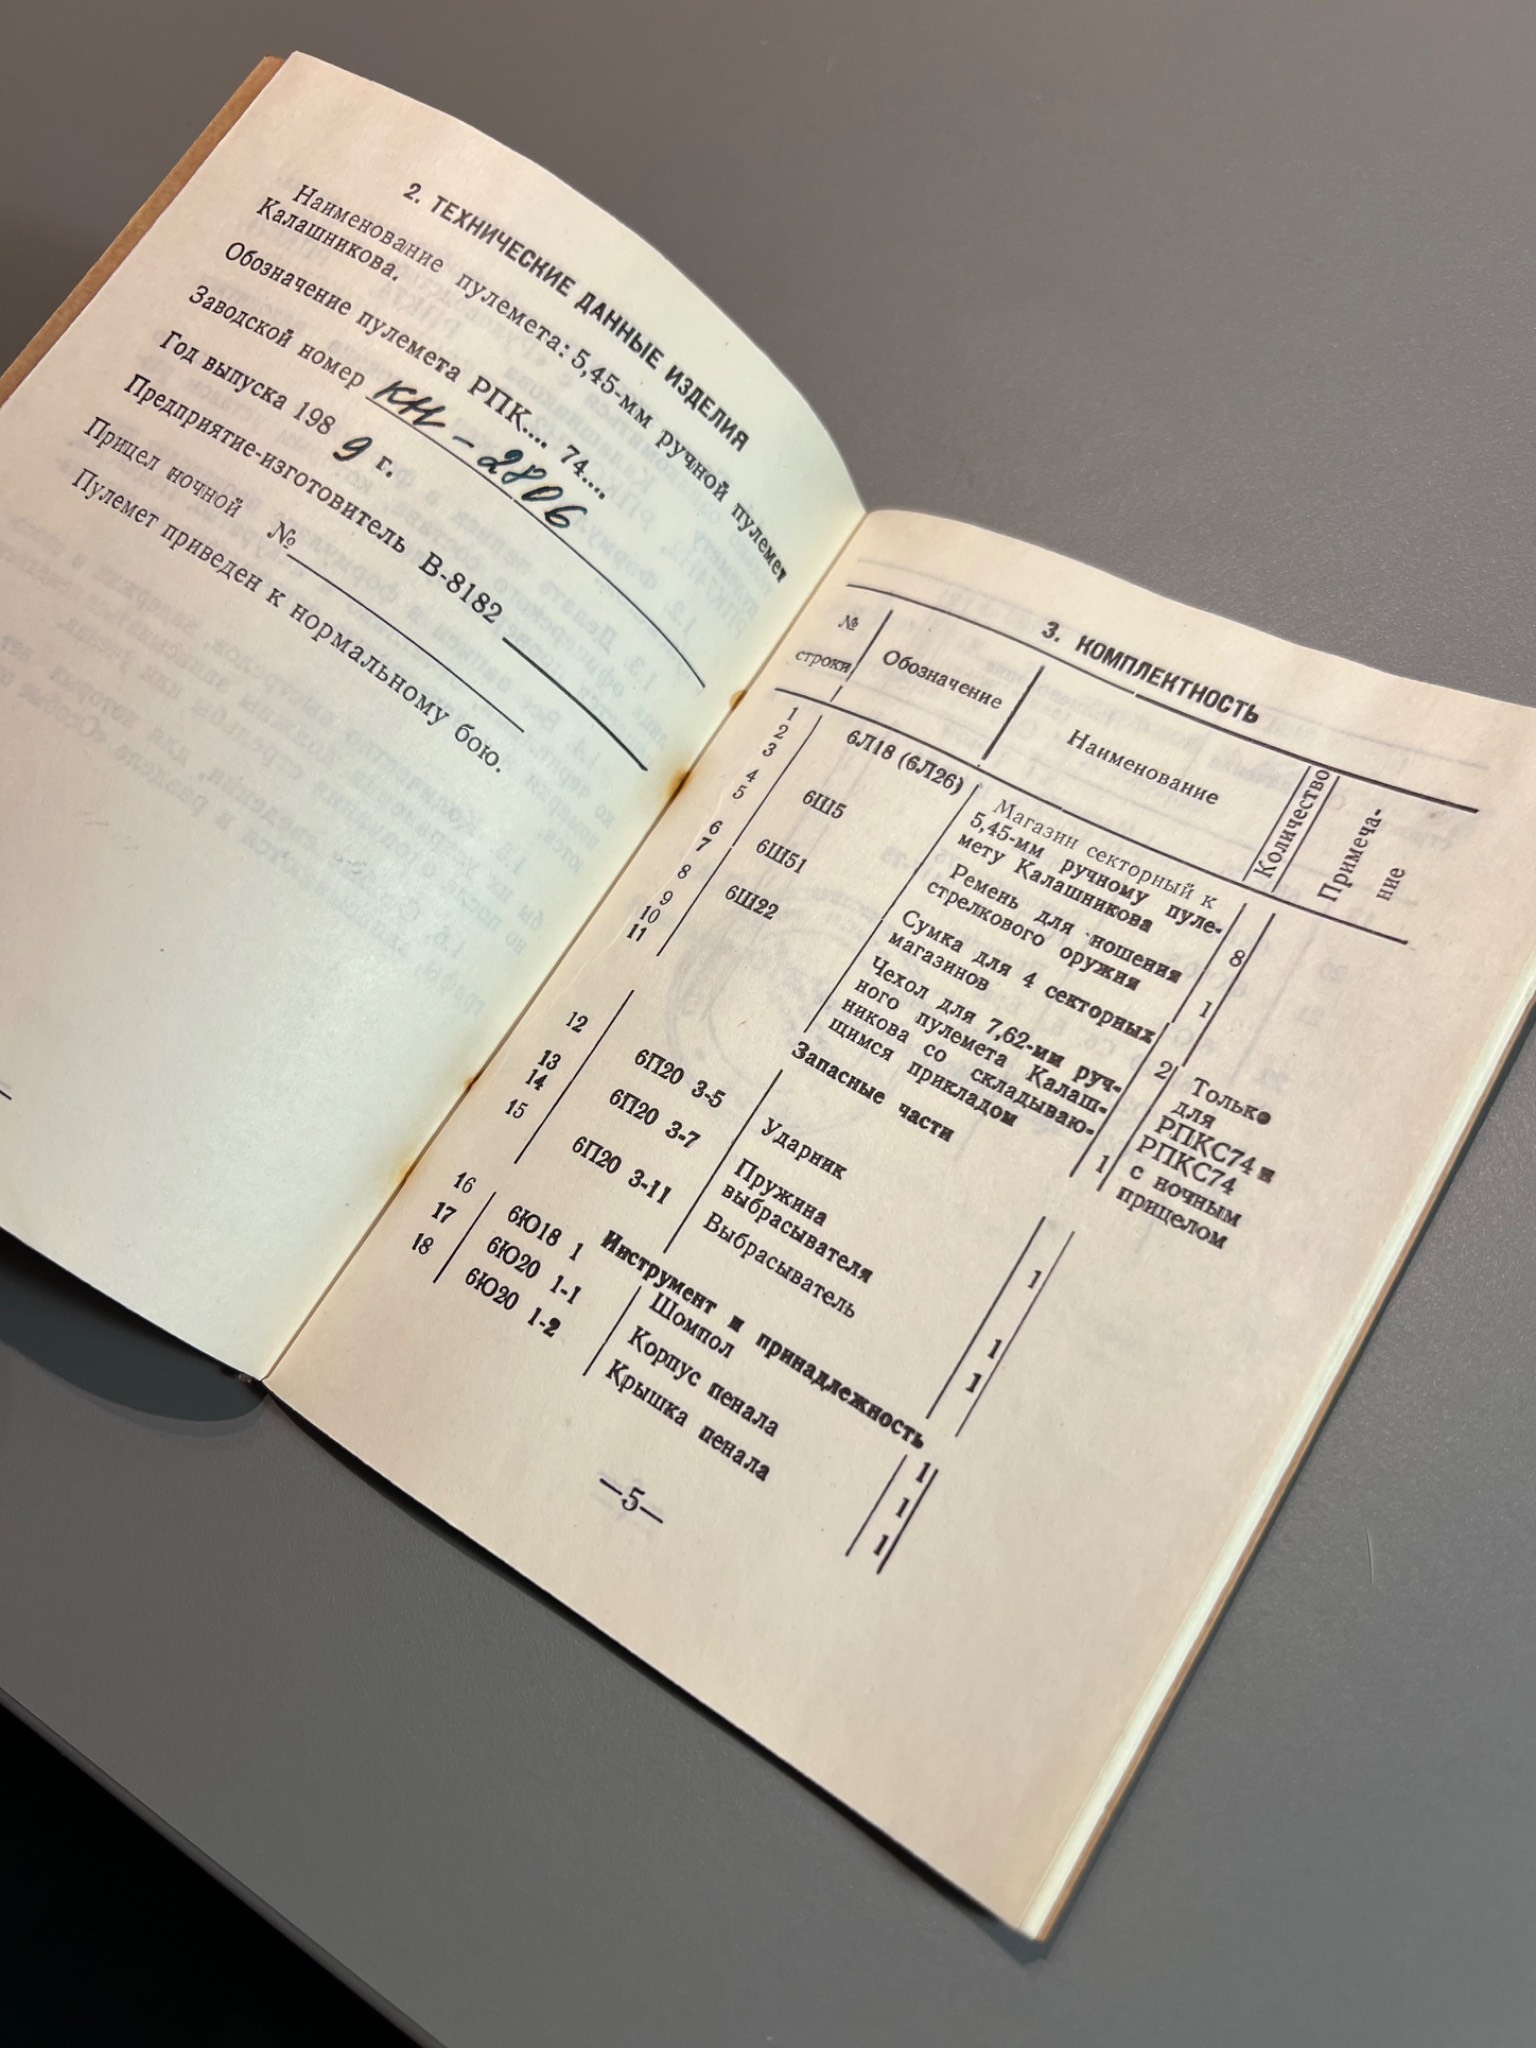 2. ТЕХНИЧЕСКИЕ ДАННЫЕ ИЗДЕЛИЯ
Наименование пулемета: 5,45-мм ручной пулемет
Калашникова.
Обозначение пулемета РПК.... 74....
Заводской номер КН-2806
Год выпуска 198 9 г.
Предприятие-изготовитель В-8182
Прицел ночной №
Пулемет приведен к нормальному бою.
3. КОМПЛЕКТНОСТЬ
№ строки Обозначение Наименование Количество Примеча-
ние
1 6Л18 (6Л26) Магазин секторный к
2 5,45-мм ручному пуле-
3 мету Калашникова 8
4 6Ш5 Ремень для ношения
5 стрелкового оружия 1
6 6Ш51 Сумка для 4 секторных
7 магазинов 2
8 6Ш22 Чехол для 7,62-мм руч- Только
9 ного пулемета Калаш- для
10 никова со складываю- РПКС74 и
11 щимся прикладом 1 РПКС74
с ночным
прицелом
Запасные части
12 6П20 3-5 Ударник 1
13 6П20 3-7 Пружина
14 выбрасывателя 1
15 6П20 3-11 Выбрасыватель 1
Инструмент и принадлежность
16 6Ю18 1 Шомпол 1
17 6Ю20 1-1 Корпус пенала 1
18 6Ю20 1-2 Крышка пенала 1
—5—